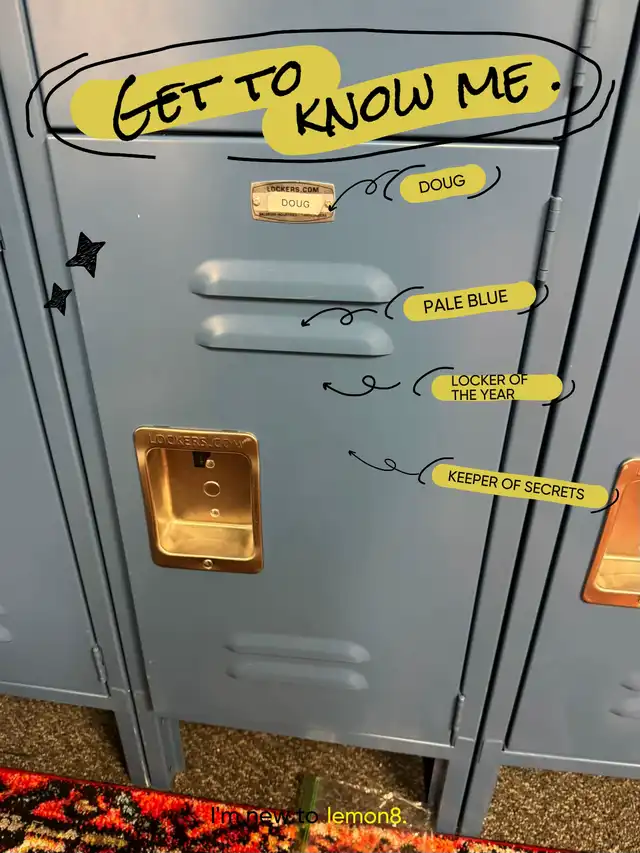 GET TO
KNOW ME.
LOCKERS.COM
DOUG
DOUG
PALE BLUE
LOCKER OF
THE YEAR
LOCKERS.COM
KEEPER OF SECRETS
I'm new to lemon8.